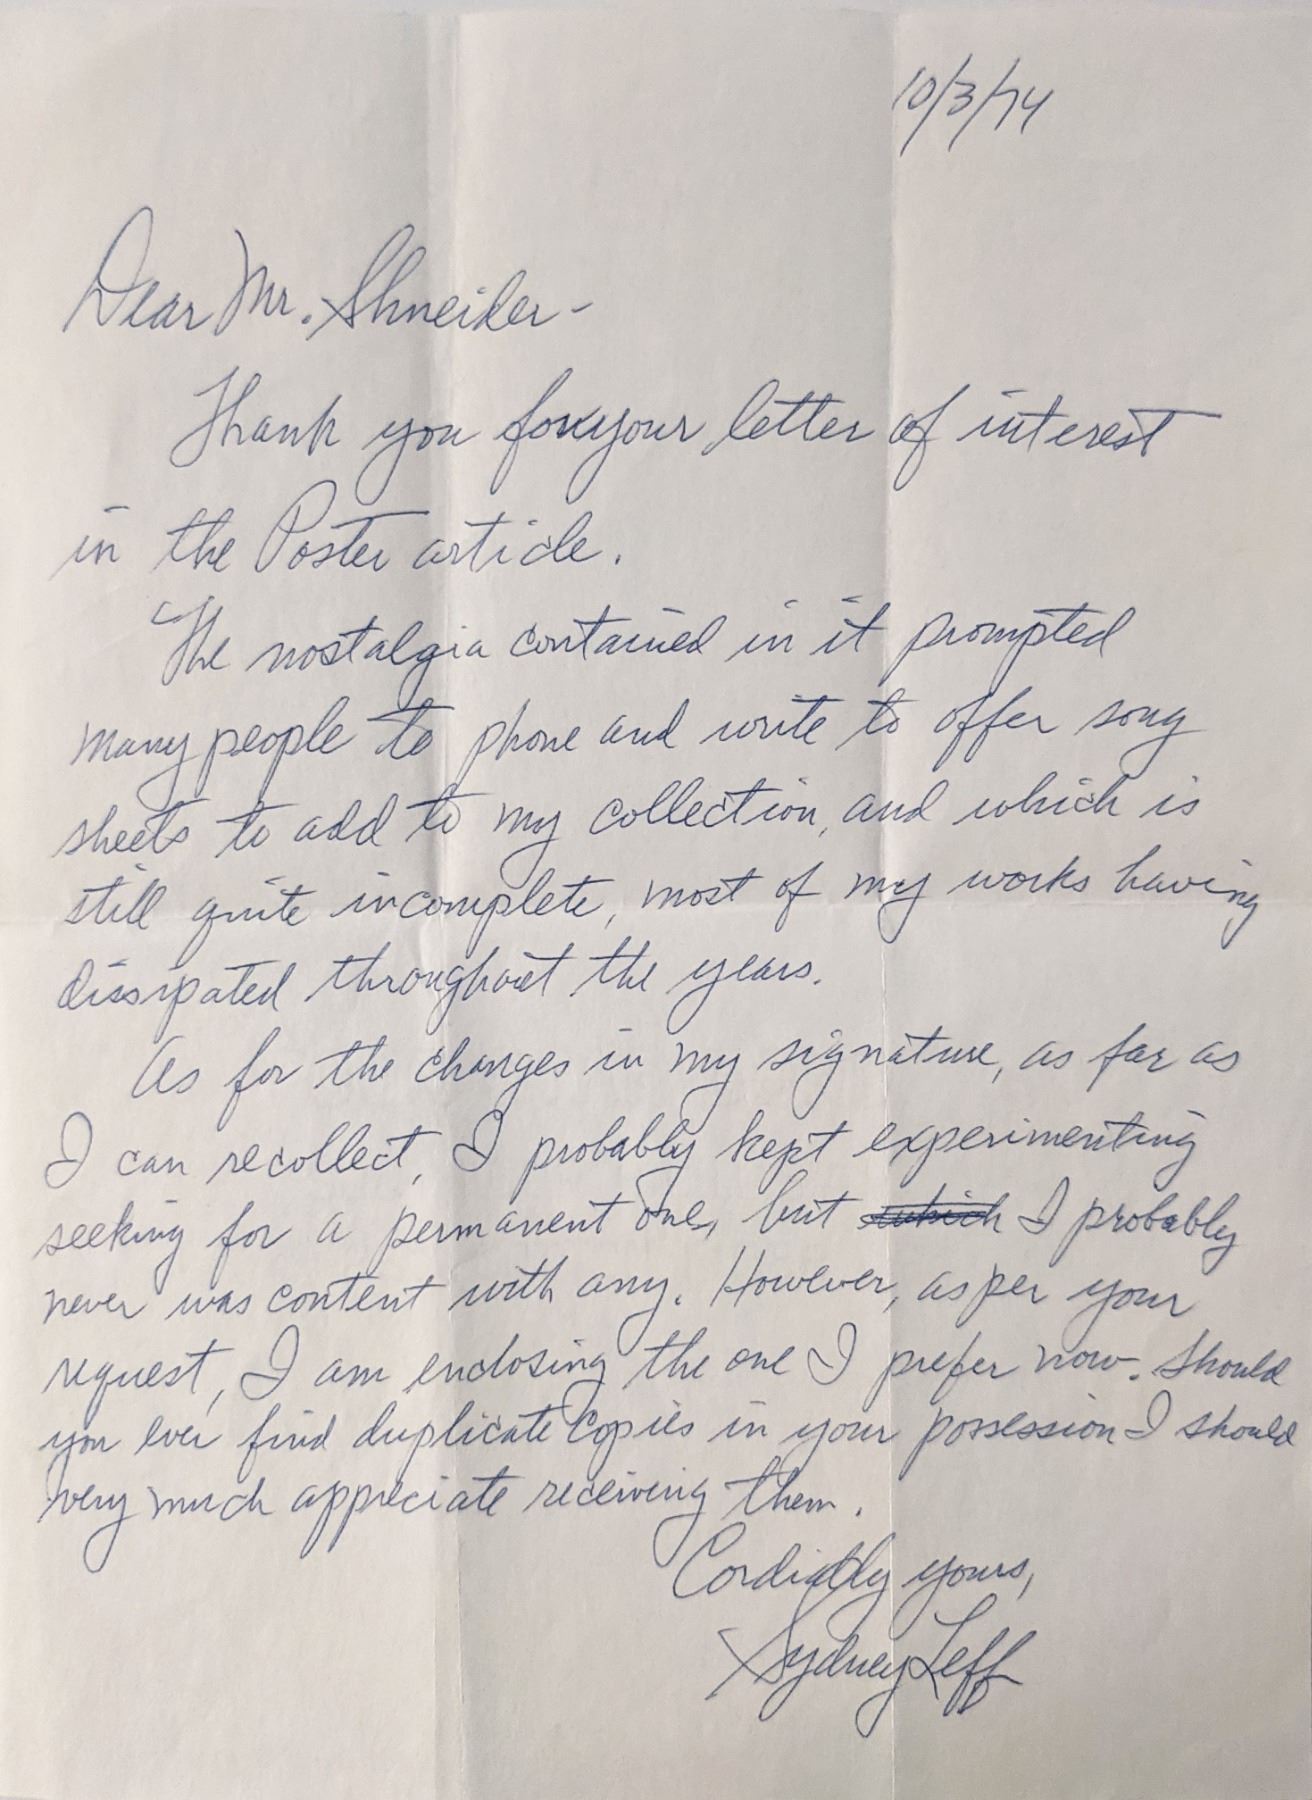 10/3/74
Dear Mr. Shneider -
Thank you for your letter of interest
in the Poster article.
The nostalgia contained in it prompted
many people to phone and write to offer song
sheets to add to my collection, and which is
still quite incomplete, most of my works having
dissipated throughout the years.
As for the changes in my signature, as far as
I can recollect, I probably kept experimenting
seeking for a permanent one, but which I probably
never was content with any. However, as per your
request, I am enclosing the one I prefer now. Should
you ever find duplicate copies in your possession I should
very much appreciate receiving them.
Cordially yours,
Sydney Leff